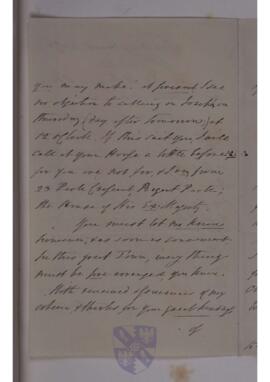 you may make: at present I see
no objection to calling on Joachim on
Thursday (day after tomorrow) at
12 o'Clock. If this suit you I will
call at your House a little before 12
for you are not far from
23 Park Crescent, Regent Park;
the House of His Ex: Majesty.
You must let me know
however, & as soon as convenient
in this great Town, every thing
must be pre arranged you know.
With renewed of my
esteem & thanks for your great kindness
of